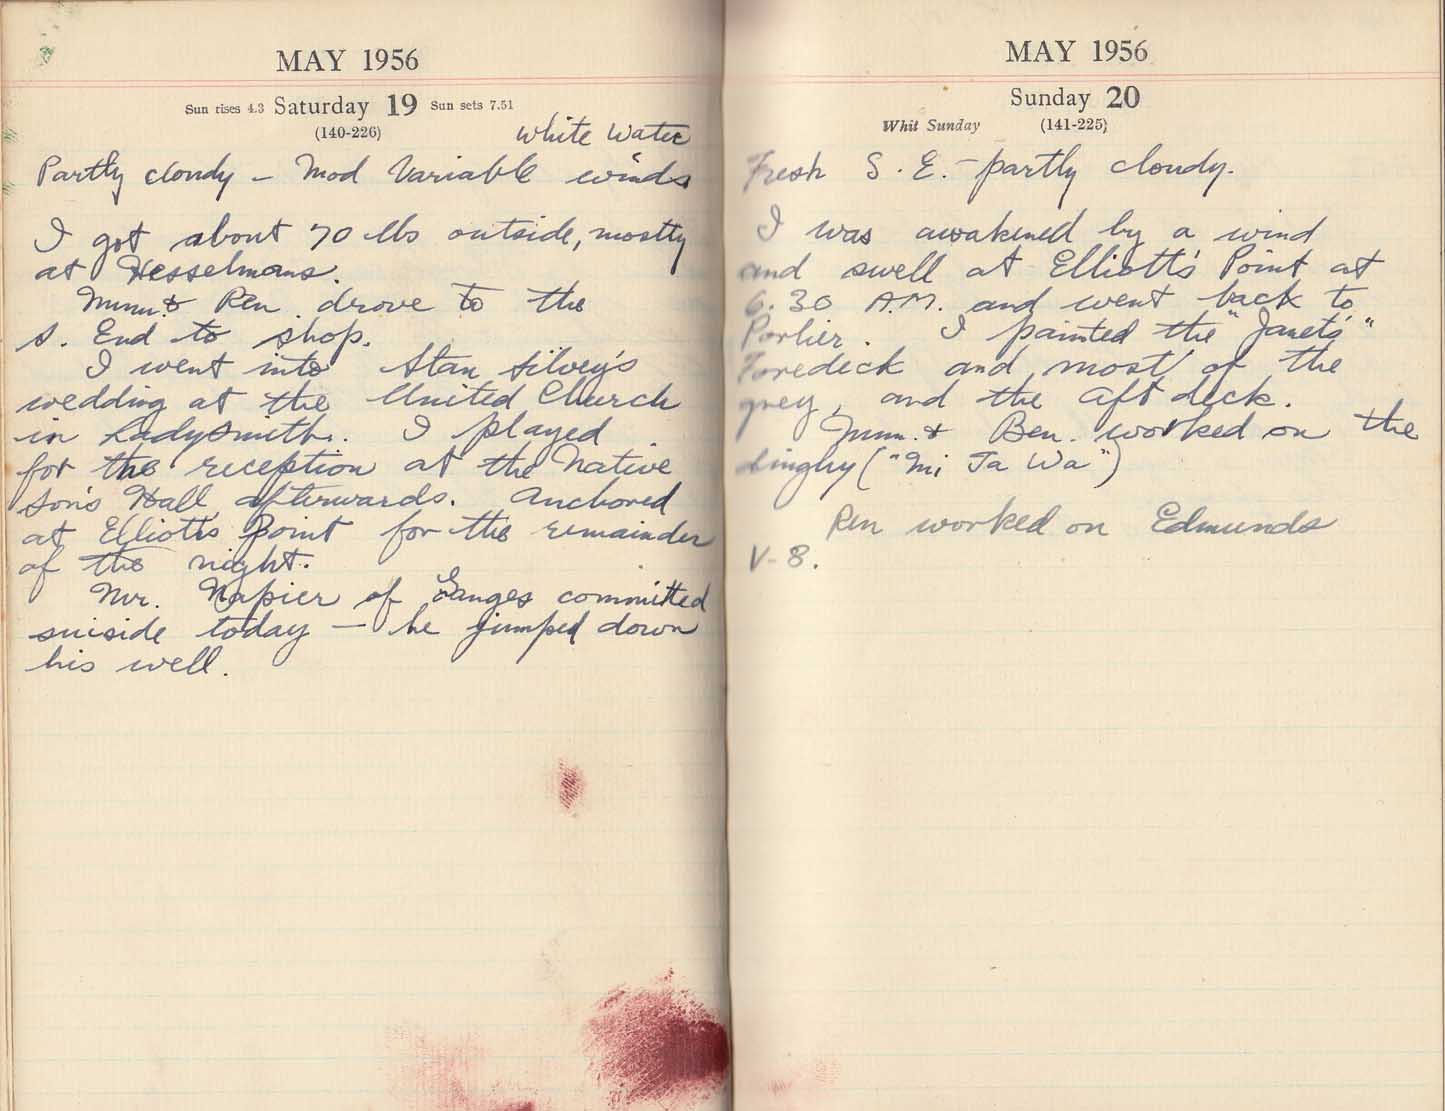 MAY 1956
Sun rises 4.3 Saturday 19 Sun sets 7.51
(140-226)
White Water
Partly cloudy - Mod Variable winds
I got about 70 lbs outside, mostly
at Hesselmans.
Mum. & Ren. drove to the
S. End to shop.
I went into Stan Silvey's
wedding at the United Church
in Ladysmith. I played
for the reception at the Native
Son's Hall afterwards. Anchored
at Elliotts Point for the remainder
of the night.
Mr. Napier of Ganges committed
suiside today - he jumped down
his well.
MAY 1956
Sunday 20
Whit Sunday (141-225)
Fresh S. E. - partly cloudy.
I was awakened by a wind
and swell at Elliott's Point at
6.30 A.M. and went back to
Porlier. I painted the "Janet's"
Foredeck and most of the
grey, and the aft deck.
Mum. & Ben. worked on the
dinghy ("Mi Ta Wa")
Ren worked on Edmunds
V-8.